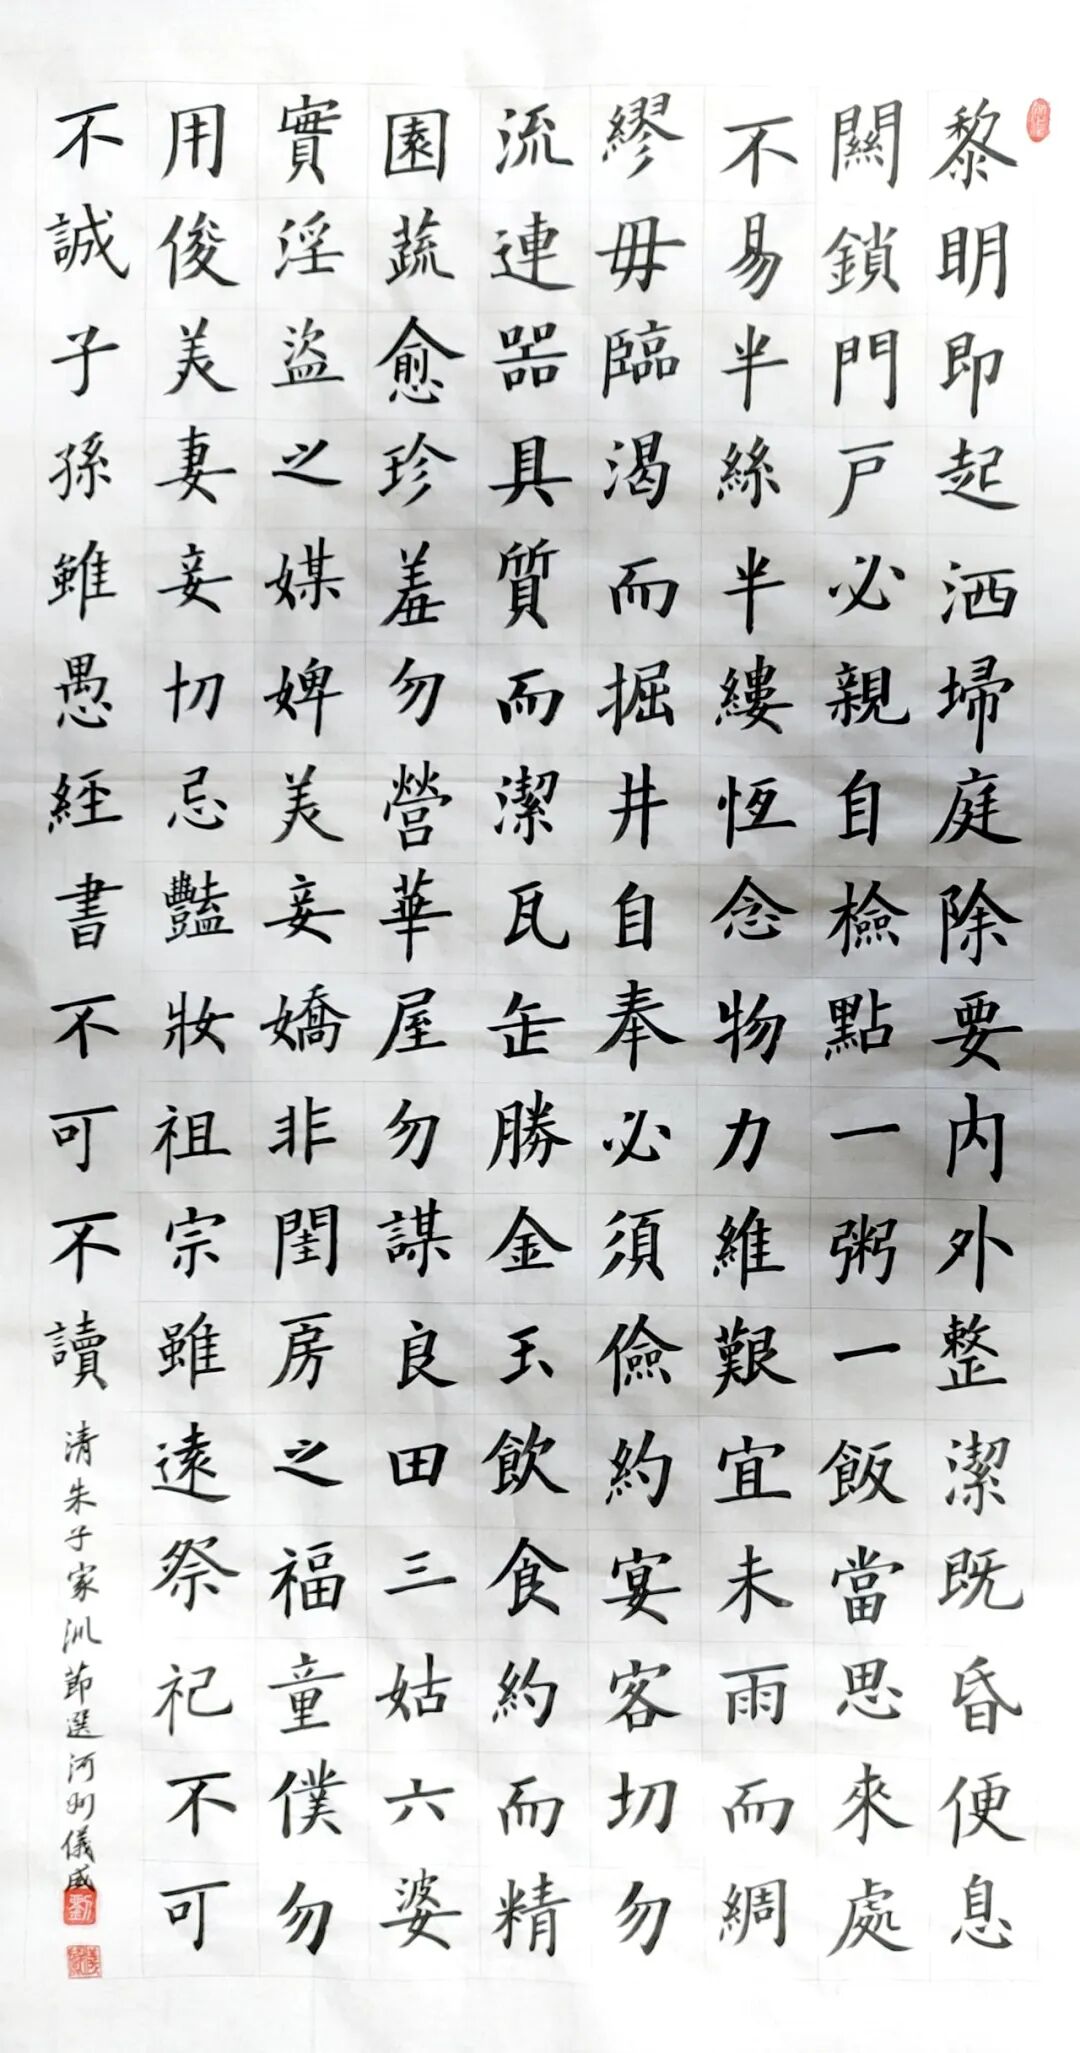 黎明即起洒埽庭除要内外整潔既昏便息
關鎖門戶必親自檢點一粥一飯當思來處
不易半絲半縷恆念物力維艱宜未雨而綢
繆毋臨渴而掘井自奉必須儉約宴客切勿
流連器具質而潔瓦缶勝金玉飲食約而精
園蔬愈珍羞勿營華屋勿謀良田三姑六婆
實淫盜之媒婢美妾嬌非閨房之福童僕勿
用俊美妻妾切忌豔妝祖宗雖遠祭祀不可
不誠子孫雖愚經書不可不讀
清朱子家訓節選河州儀盛